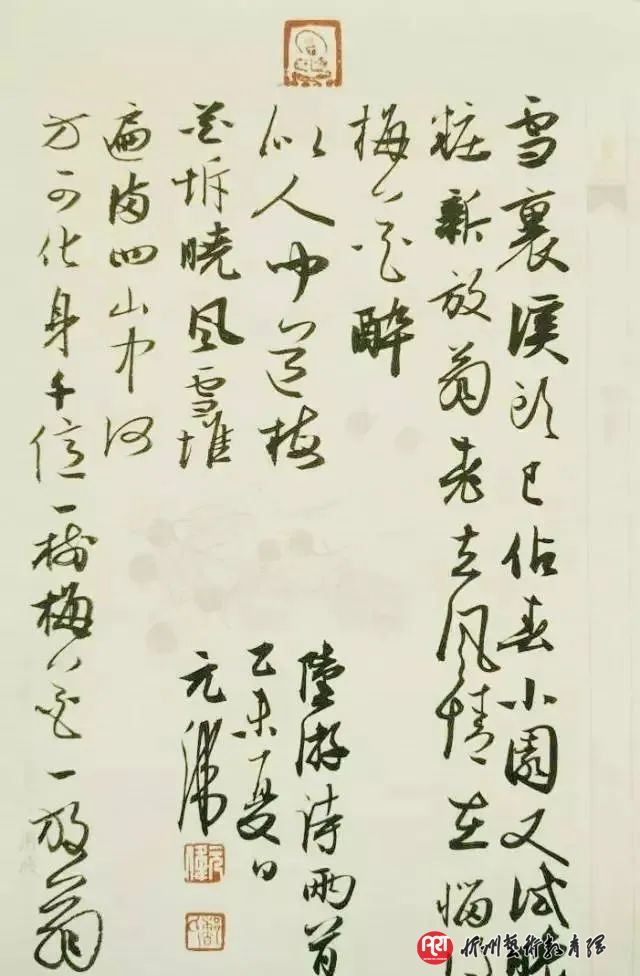 雪裏溪頭已佔春小園又試
粧新放翁老去風情在惱
梅花醉
似人 聞道梅
花坼曉風雪堆
遍滿四山中何
方可化身千億一樹梅花一放翁
陸游詩兩首
乙未夏日
元
ART 忻州藝術教育